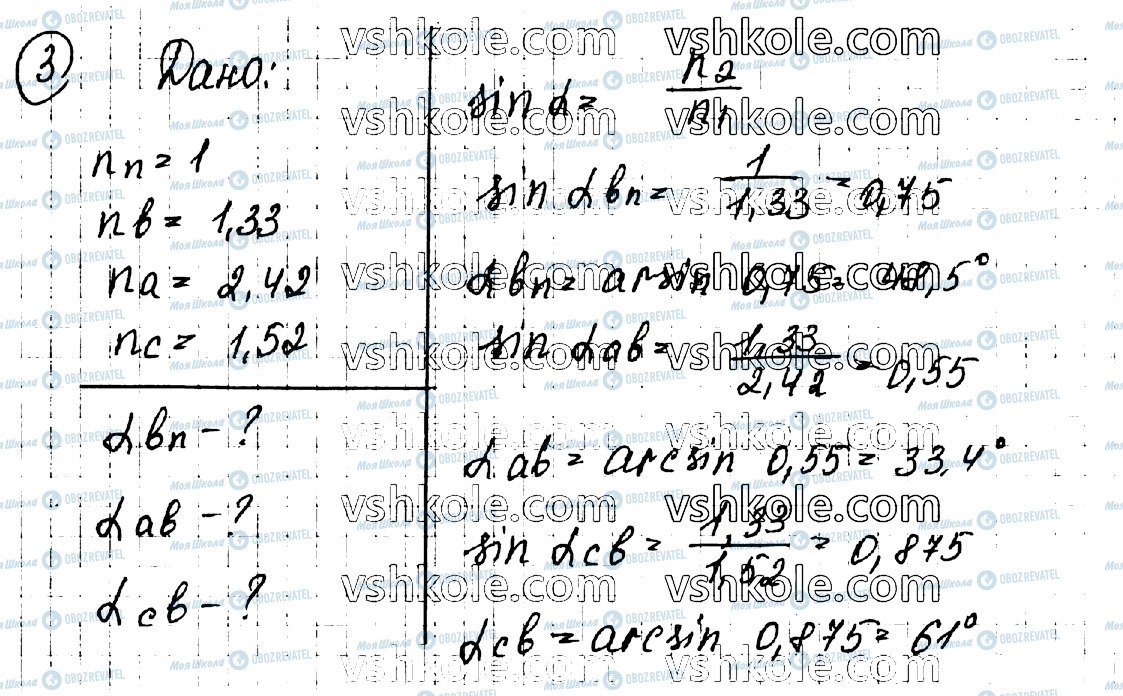 3 Дано:
nп = 1
nв = 1,33
nа = 2,42
nс = 1,52
αвп - ?
αав - ?
αсв - ?
sin α = n2/n1
sin αвп = 1/1,33 = 0,75
αвп = arcsin 0,75 = 48,5°
sin αав = 1,33/2,42 = 0,55
αав = arcsin 0,55 = 33,4°
sin αсв = 1,33/1,52 = 0,875
αсв = arcsin 0,875 = 61°
vshkole.com
Моя Школа OBOZREVATEL